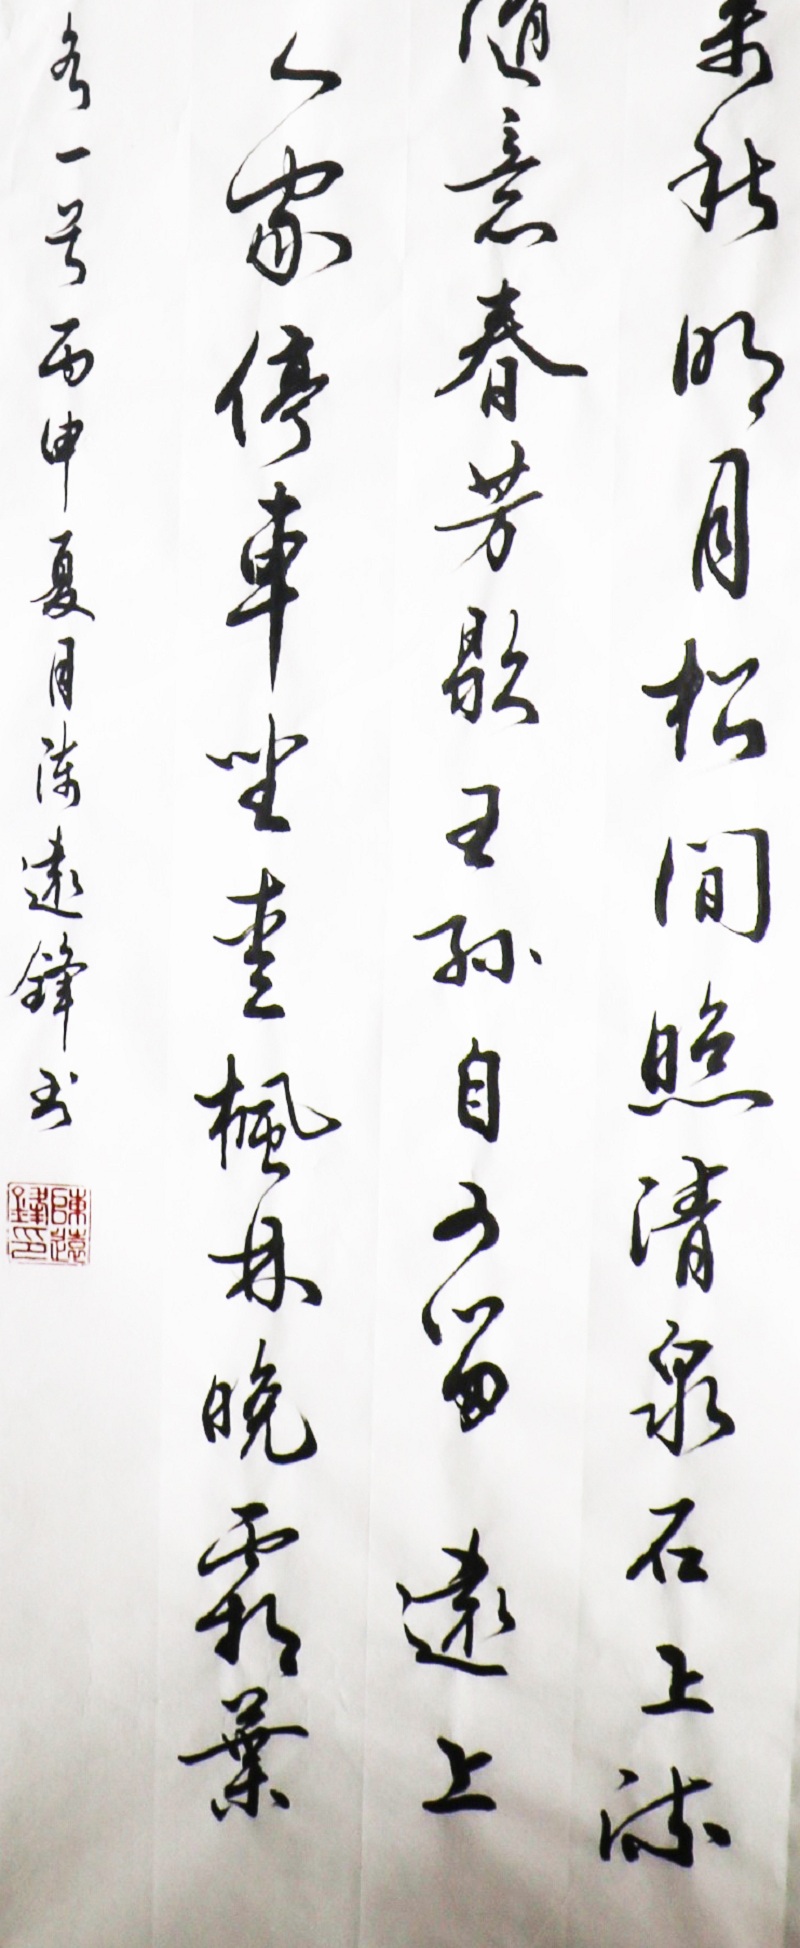 来秋明月松间照清泉石上流
随意春芳歇王孙自可留 远上
人家停車坐爱楓林晚霜葉
各一首丙申夏月陈遠鋒书
陳遠鋒印